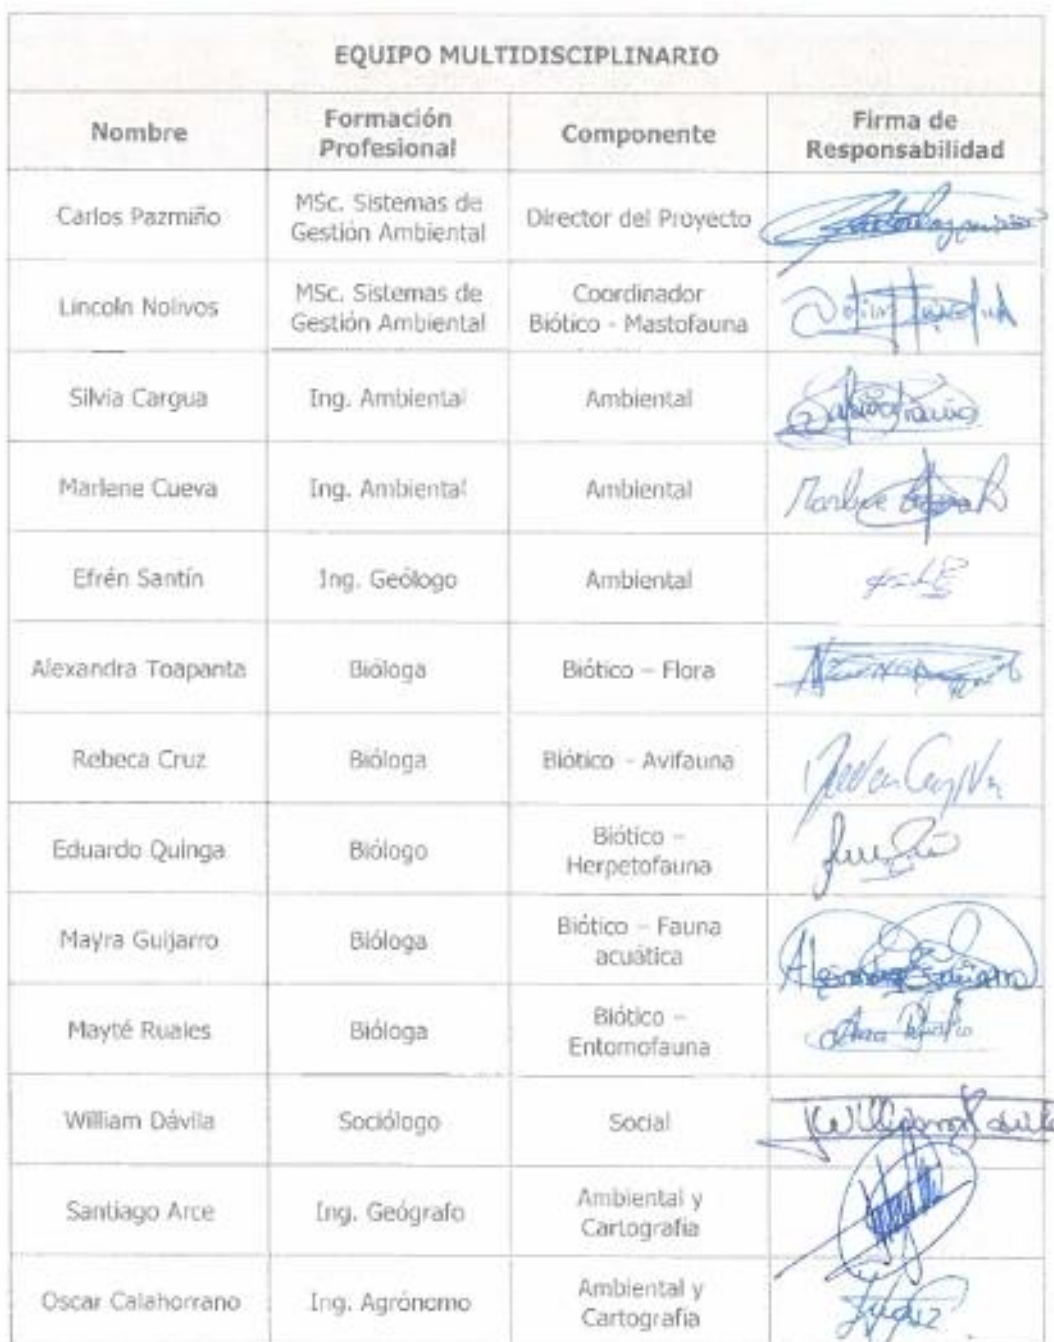 EQUIPO MULTIDISCIPLINARIO
Nombre
Formación
Profesional
Componente
Firma de
Responsabilidad
Carlos Pazmiño
MSc. Sistemas de
Gestión Ambiental
Director del Proyecto
Lincoln Nolivos
MSc. Sistemas de
Gestión Ambiental
Coordinador
Biótico - Mastofauna
Silvia Cargua
Ing. Ambiental
Ambiental
Marlene Cueva
Ing. Ambiental
Ambiental
Marlene
Efrén Santín
Ing. Geólogo
Ambiental
Alexandra Toapanta
Bióloga
Biótico – Flora
Rebeca Cruz
Bióloga
Biótico - Avifauna
Eduardo Quinga
Biólogo
Biótico –
Herpetofauna
Mayra Guijarro
Bióloga
Biótico – Fauna
acuática
Mayté Ruales
Bióloga
Biótico –
Entomofauna
William Dávila
Sociólogo
Social
Santiago Arce
Ing. Geógrafo
Ambiental y
Cartografía
Oscar Calahorrano
Ing. Agrónomo
Ambiental y
Cartografía